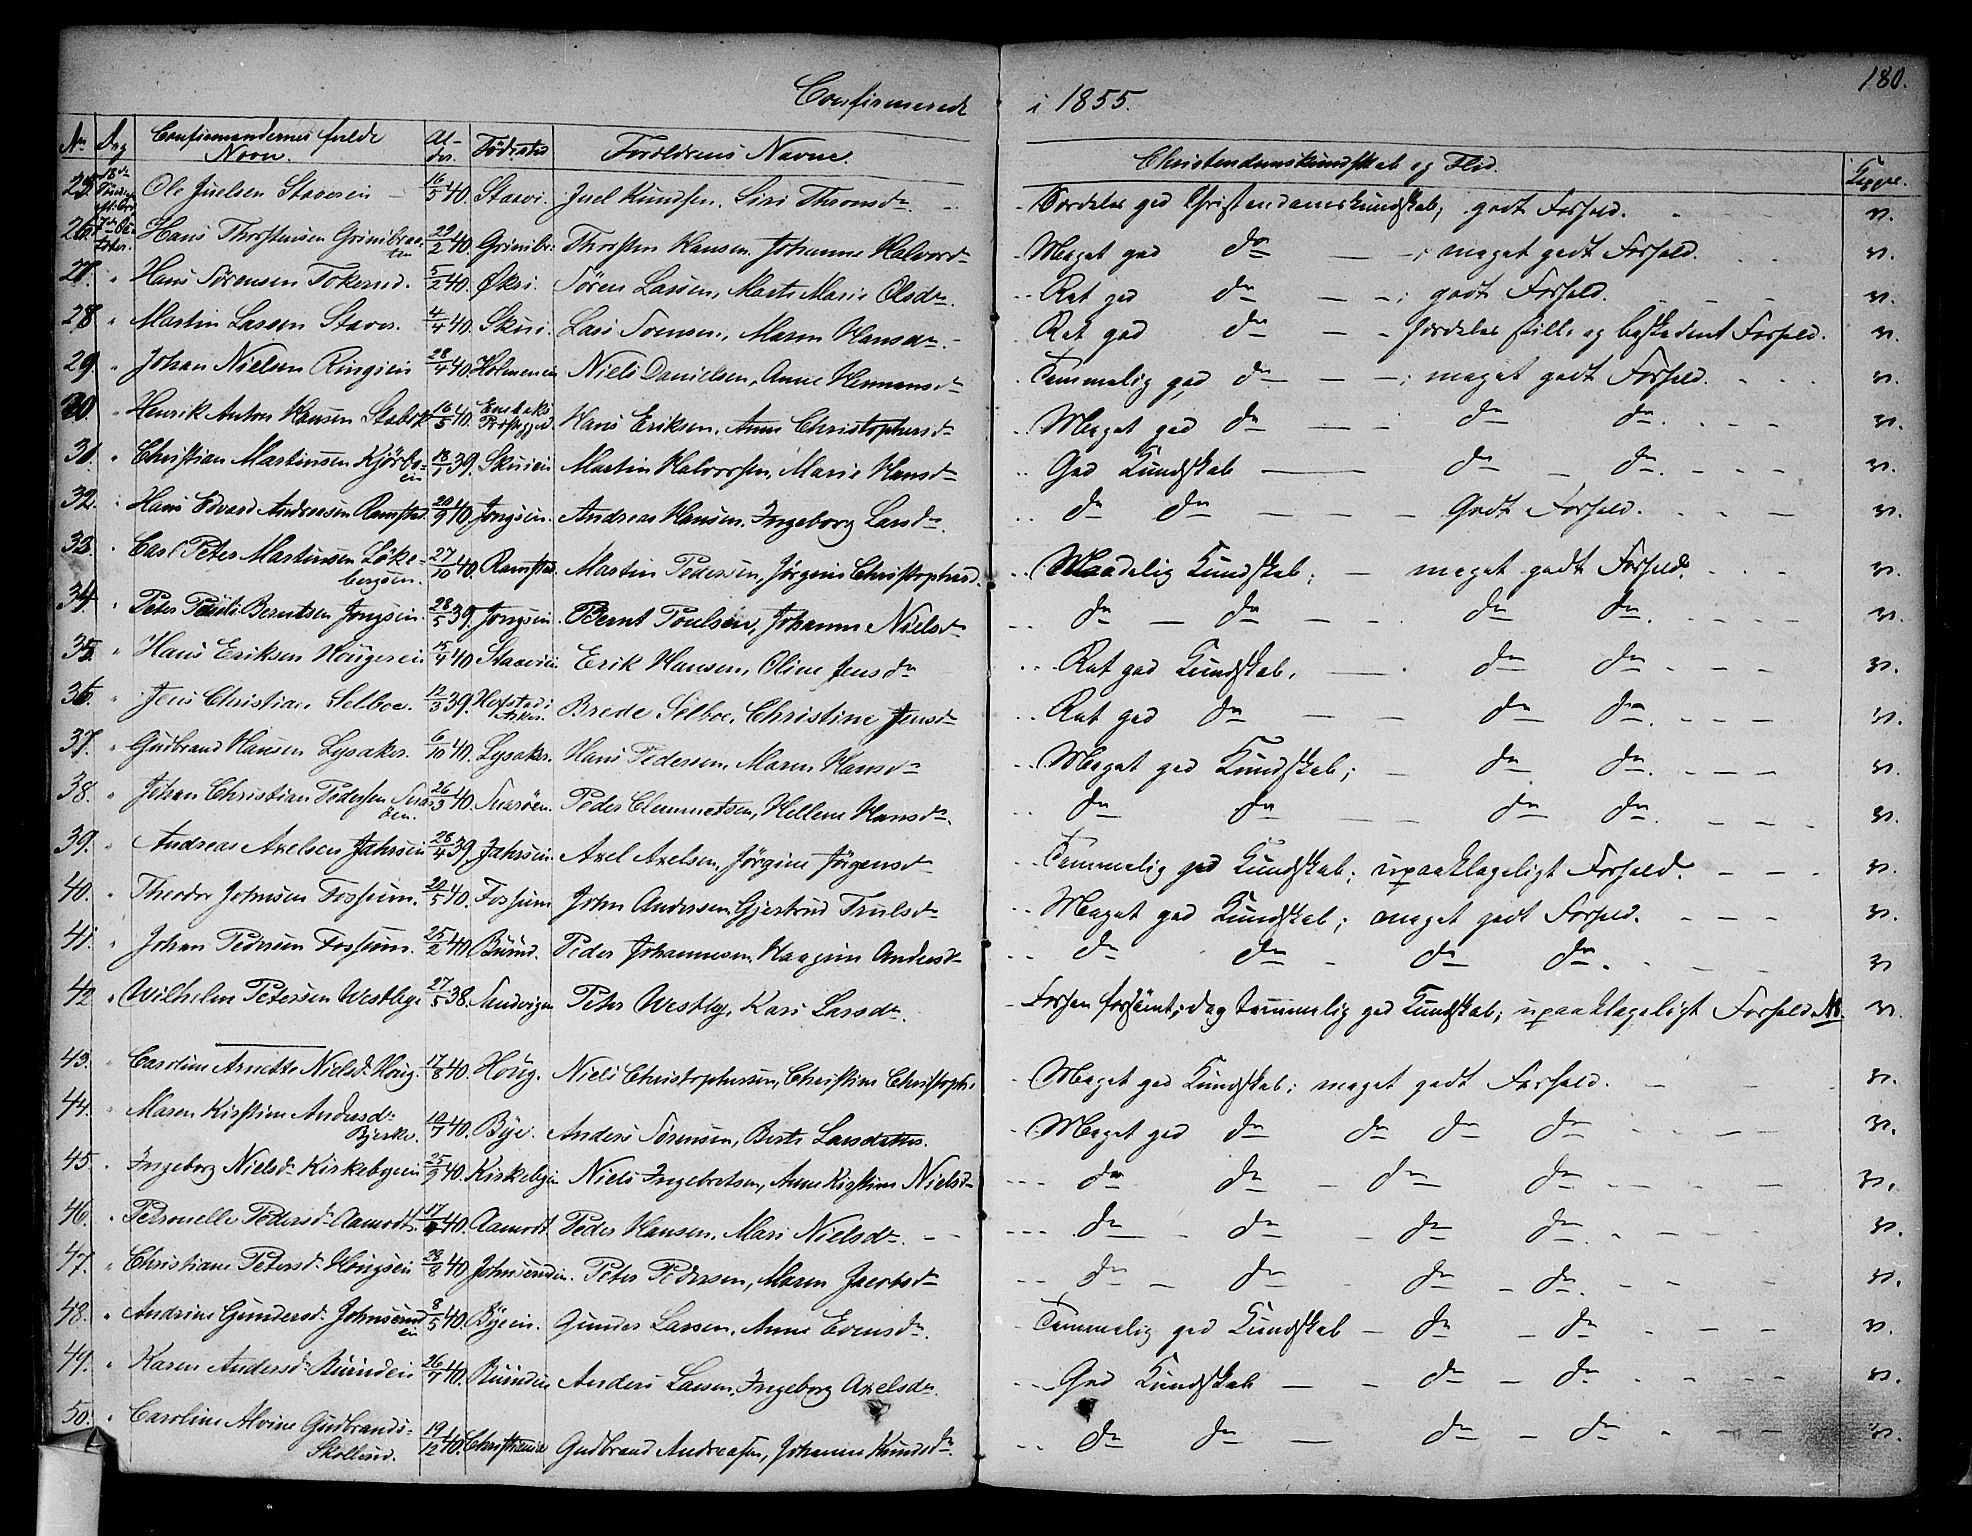 Confirmerede i 1855. 180.
No Dag Confirmandernes fulde Navn. Alder. Födested Forældrens Navne. Christendomskundskab og Flid. Koppe.
25. Ole Juelsen Staverin 16/5 40. Staevi. Juel Knudsen, Siri Thronsdr. Særdeles god Christendomskundskab; godt Forhold. v.
26. Hans Thorstensen Grinibraaten 22/2 40. Grinibr. Thorsten Hansen, Johanne Halvordr Meget god do ; meget godt Forhold. v.
27. " Hans Sörensen Tokerud. 5/2 40. Økri. Sören Larsen, Marte Marie Olsdr. Ret god do ; godt Forhold. v.
28. " Martin Larsen Staver. 4/4 40. Skui. Lars Svensen, Maren Hansdr. Ret god do særdeles stille og beskedent Forhold. v.
29. " Johan Nielsen Ringien 28/4 40. Holmenein Niels Danielsen, Anne Hermansdr Temmelig god, do ; meget godt Forhold. v.
30. " Henrik Anton Hansen Stabek 16/5 40. Enebaks Præstegjed. Hans Eriksen, Anne Christophersdr Meget god do do do. v.
31. " Christian Martinsen Kjörboein 39. Skuiein Martin Halvorsen, Marie Hansdr God Kundskab do do. v.
32. " Hans Edvard Andreasen Ramstad. 20/9 40. Jongsein. Andreas Hansen, Ingeborg Larsdr. do do Godt Forhold. v.
33. " Carl Peter Martinsen Lökebergsein. 27/10 40. Ramstad. Martin Pedersen, Jörgine Christophersd. Maadelig Kundskab; meget godt Forhold. v.
34. " Peter Berntsen Jongsein. 28/5 39. Jongsein. Bernt Poulsen, Johanne Nielsdr do do do do. v.
35. " Hans Eriksen Hougerein 15/4 40. Staverein. Erik Hansen, Oline Jensdr Ret god Kundskab. do do. v.
36. " Jens Christian Selboe. 12/3 39. Hofstad i Asker. Brede Selboe, Christine Jensdr Ret god do do do. v.
37. " Gudbrand Hansen Lysaker. 6/10 40. Lysaker. Hans Pedersen, Maren Hansdr Meget god Kundskab; do do. v.
38. " Johan Christian Pedersen Snaröen. 26/3 40. Snaröen. Peder Clemmetsen, Hellene Hansdr. do do do do. v.
39. " Andreas Axelsen Jahrsein 28/4 39. Jahrsein Axel Axelsen, Jörgine Jörgensdr Temmelig god Kundskab; upaaklageligt Forhold. v.
40. " Theodor Johnsen Fossum. 20/5 40. Fossum John Andersen, Gjertrud Trulsdr Meget god Kundskab; meget godt Forhold. v.
41. " Johan Pedersen Fossum. 25/2 40. Burud. Peder Johannesen, Haagine Andersdr do do do do. v
42. " Wilhelm Petersen Westbye 27/5 38. Sandvigen Peter Westby, Kari Larsdr. Forhen forsömt, dog temmelig god Kundskab; upaaklageligt Forhold. v.
43. " Caroline Arnette Nielsdr Houg. 17/8 40. Houg. Niels Christophersen, Christine Christophr. Meget god Kundskab; meget godt Forhold. v.
44. " Maren Kirstine Andersdr Bjerke. 19/7 40. Bye. Anders Sörensen, Berte Larsdatter. Meget god do do do do v.
45. " Ingeborg Nielsdr Kirkebyein 25/9 40. Kirkebyein Niels Ingebretsen, Anne Kirstine Nielsdr do do do do v.
46. " Petronelle Pedersdr Aamodt. 17/ 40. Aamodt. Peder Hansen, Mari Nielsdr. do do do do v.
47. " Christiane Petersdr Hougsein 28/8 40. Johnsrudein. Peter Pedersen, Maren Jacobsdr do do do do v.
48. " Andrine Gundersdr Johnsrudein 8/5 40. Byein. Gunder Larsen, Anne Evensdr. Temmelig god Kundskab do do v.
49. " Karen Andersdr Burudein 26/7 40. Burudein Anders Larsen, Ingeborg Axelsdr. God Kundskab do do v.
50. " Caroline Alvine Gudbrands: Skollerud. 19/12 40. Christiania Gudbrand Andreasen, Johanne Knudsdr. do do do do v.